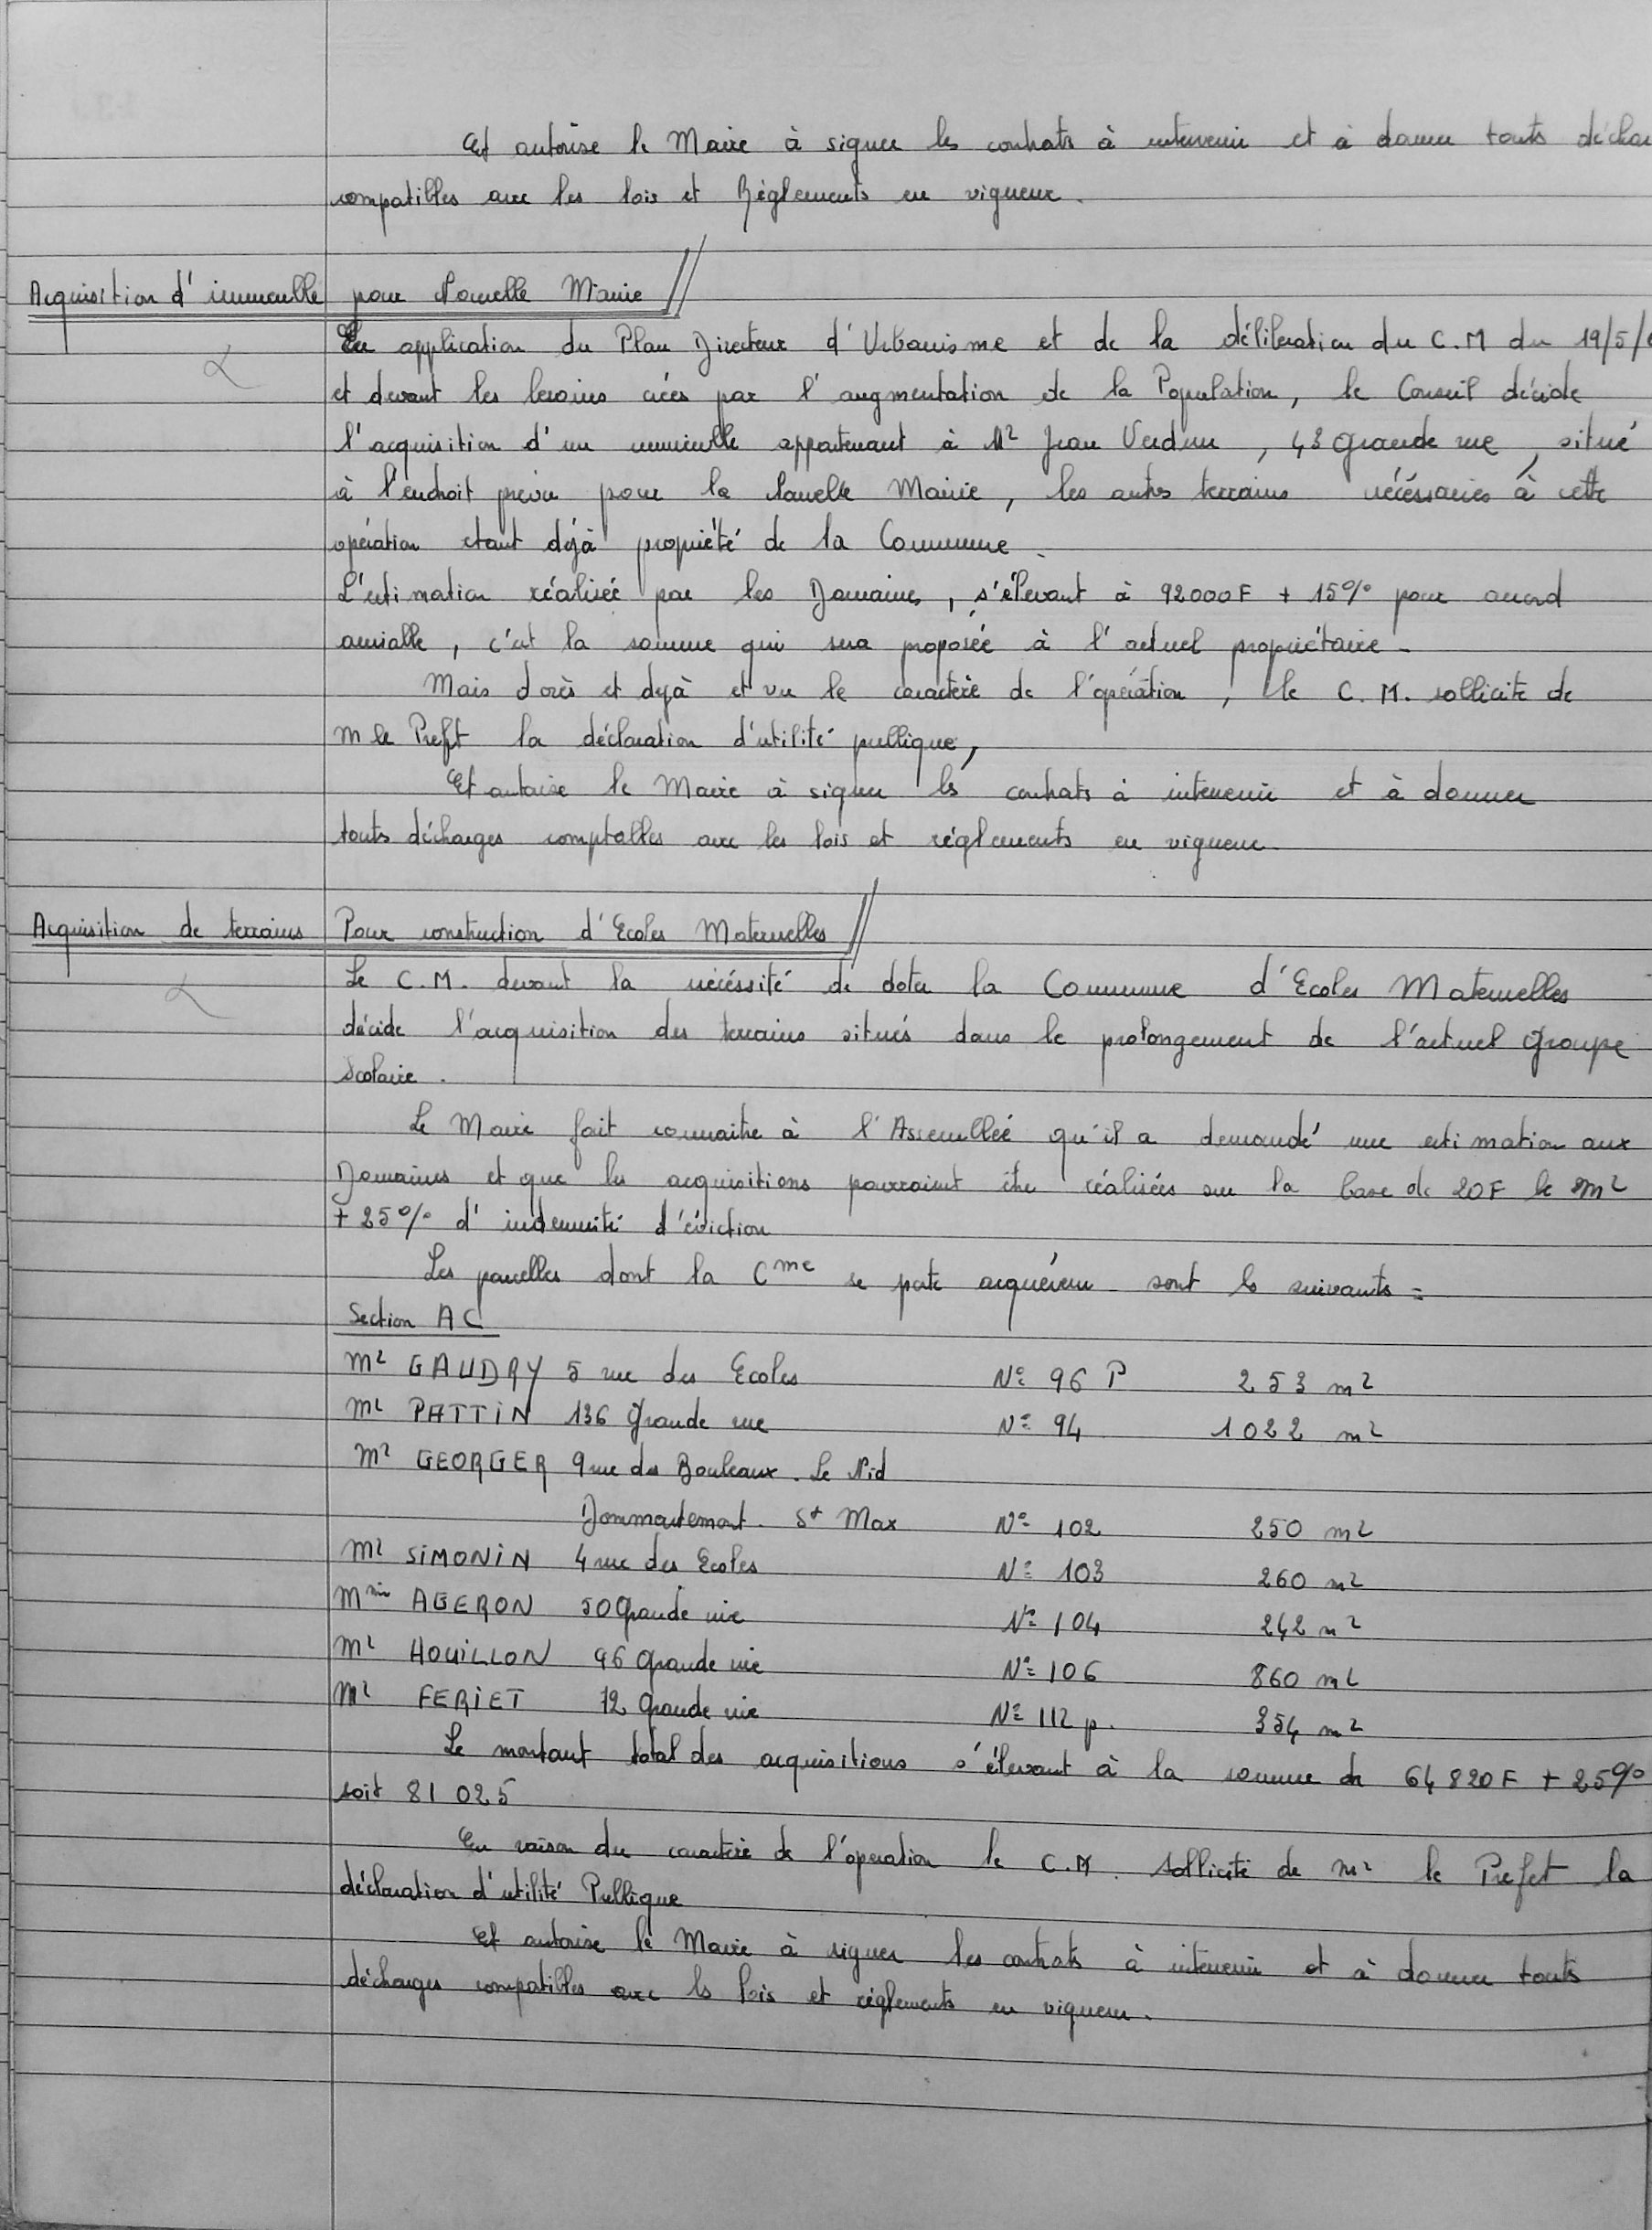 Et autorise le Maire à signer les contrats à intervenir et à donner touts déchar
compatibles avec les lois et Règlements en vigueur.
Acquisition d'immeuble pour Nouvelle Mairie
En application du Plan Directeur d'Urbanisme et de la déliberation du C.M du 19/5/6
et devant les besoins créés par l'augmentation de la Population, le Conseil décide
l'acquisition d'un immeuble appartenant à Mr Jean Verdun, 43 Grande rue, situé
à l'endroit prévu pour la Nouvelle Mairie, les autres terrains nécéssaires à cette
opération étant déjà propriété de la Commune.
L'estimation réalisée par les Domaines, s'élevant à 92000F + 15% pour accord
amiable, c'est la somme qui sera proposée à l'actuel propriétaire.
Mais dorès et dejà et vu le caractère de l'opération, le C.M. sollicite de
M le Prefet la déclaration d'utilité publique,
Et autorise le Maire à signer les contrats à intervenir et à donner
touts décharges comptables avec les lois et réglements en vigueur.
Acquisition de terrains Pour construction d'Ecoles Maternelles
Le C.M. devant la nécéssité de doter la Commune d'Ecoles Maternelles
décide l'acquisition des terrains situés dans le prolongement de l'actuel Groupe
Scolaire.
Le Maire fait connaitre à l'Assemblée qu'il a demandé une estimation aux
Domaines et que les acquisitions pourraient être réalisées sur la base de 20F le m2
+ 25% d'indemnité d'éviction
Les parcelles dont la Cme se porte acquéreur sont les suivants =
Section AC
Mr GAUDRY 5 rue des Ecoles N° 96 P 253 m2
Mr PATTIN 136 Grande rue N° 94 1022 m2
Mr GEORGER 9 rue des Bouleaux. Le Nid
Dommartemont. St Max N° 102 250 m2
Mr SIMONIN 4 rue des Ecoles N° 103 260 m2
Mme AGERON 50 Grande rue N° 104 242 m2
Mr HOUILLON 96 Grande rue N° 106 860 m2
Mr FERIET 72 Grande rue N° 112 p. 354 m2
Le montant total des acquisitions s'élevant à la somme de 64 820F + 25%
soit 81 025
En raison du caractère de l'opération le C.M. sollicite de Mr le Prefet la
déclaration d'utilité Publique
Et autorise le Maire à signer les contrats à intervenir et à donner touts
décharges compatibles avec les lois et réglements en vigueur.